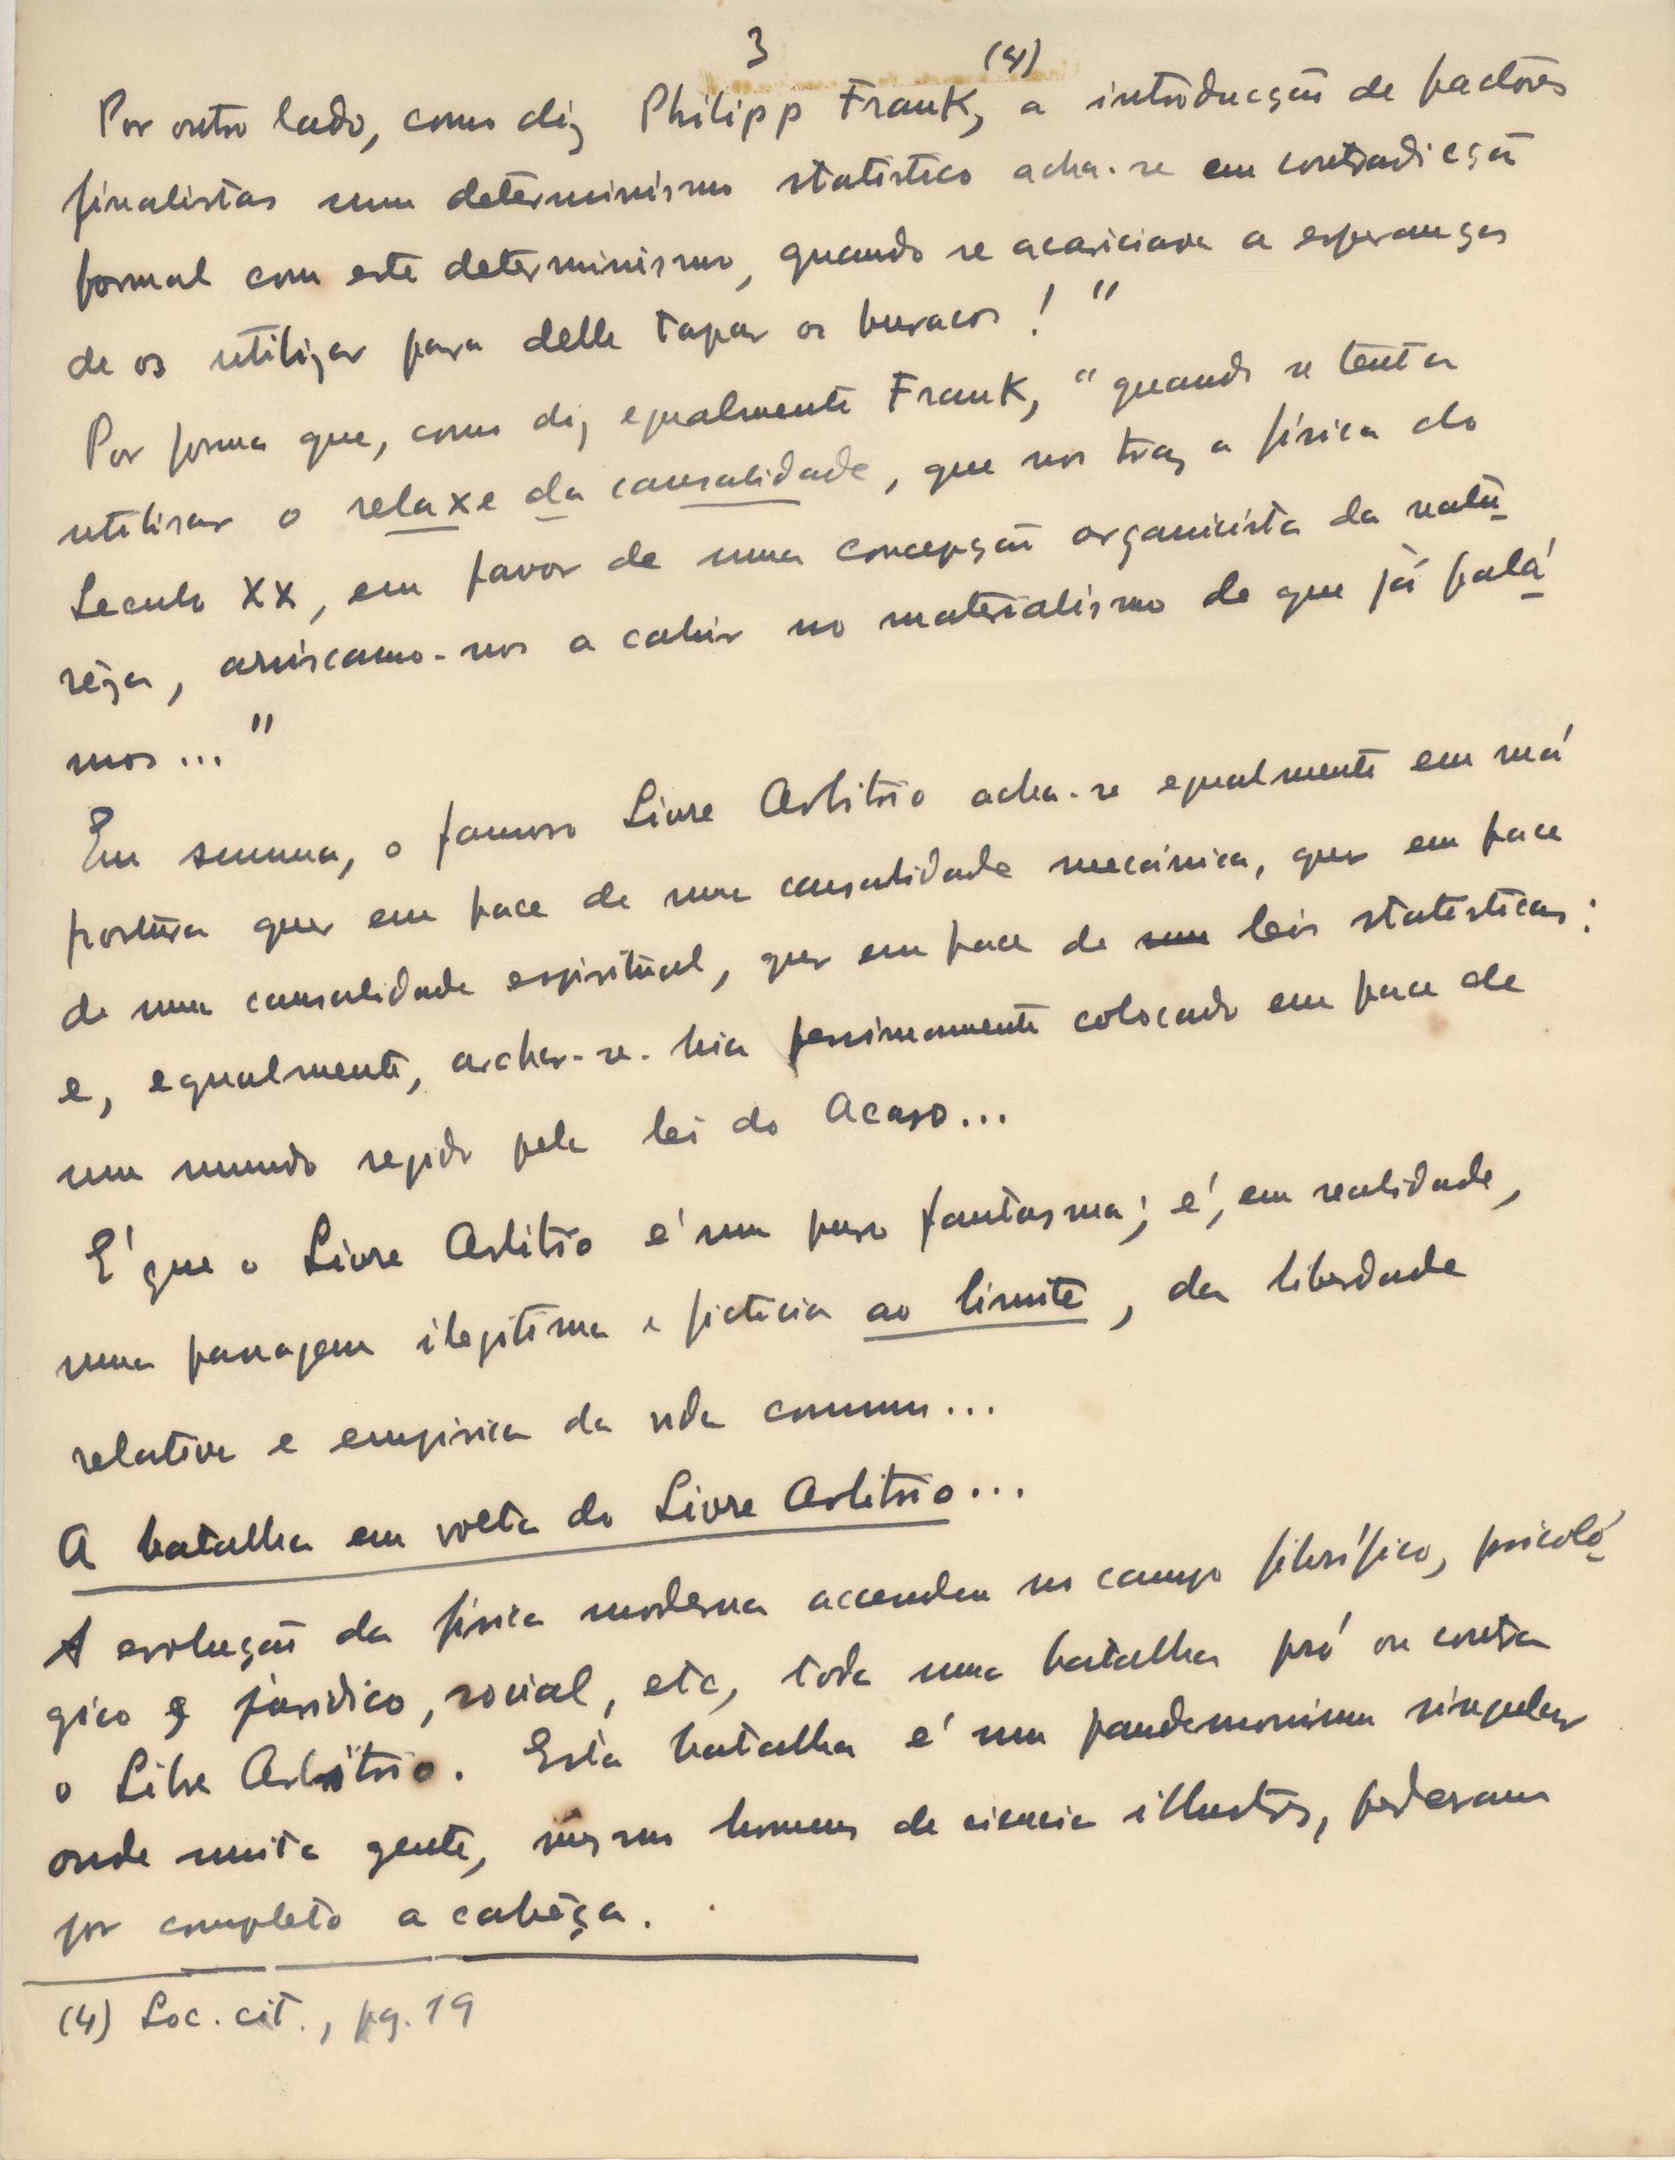 3
(4)
Por outro lado, como diz Philipp Frank, a introducção de factores
finalistas num determinismo statistico acha-se em contradicção
formal com este determinismo, quando se acariciava a esperança
de os utilizar para delle tapar os buracos! "
Por forma que, como diz egualmente Frank, "quando se tenta
utilisar o relaxe da causalidade, que nos traz a física do
Seculo XX, em favor de uma concepção organicista da natu-
rêza, arriscamo-nos a cahir no materialismo de que já falá-
mos..."
Em summa, o famoso Livre Arbitrio acha-se egualmente em má
postura quer em face de uma causalidade mecánica, quer em face
de uma causalidade espiritual, quer em face de leis statisticas;
e, egualmente, achar-se-hia pessimamente colocado em face de
um mundo regido pela lei do Acaso...
É que o Livre Arbitrio é um puro fantasma; é, em realidade,
uma passagem ilegitima e ficticia ao limite, da liberdade
relativa e empirica da vida commum...
A batalha em volta do Livre Arbitrio...
A evolução da física moderna accendeu no campo filosófico, psicoló-
gico e juridico, social, etc, toda uma batalha pró ou contra
o Libre Arbitrio. Esta batalha é um pandemonium singular
onde muita gente, mesmo homens de ciencia illustres, perderam
por completo a cabêça.
(4) Loc. cit., pg. 19